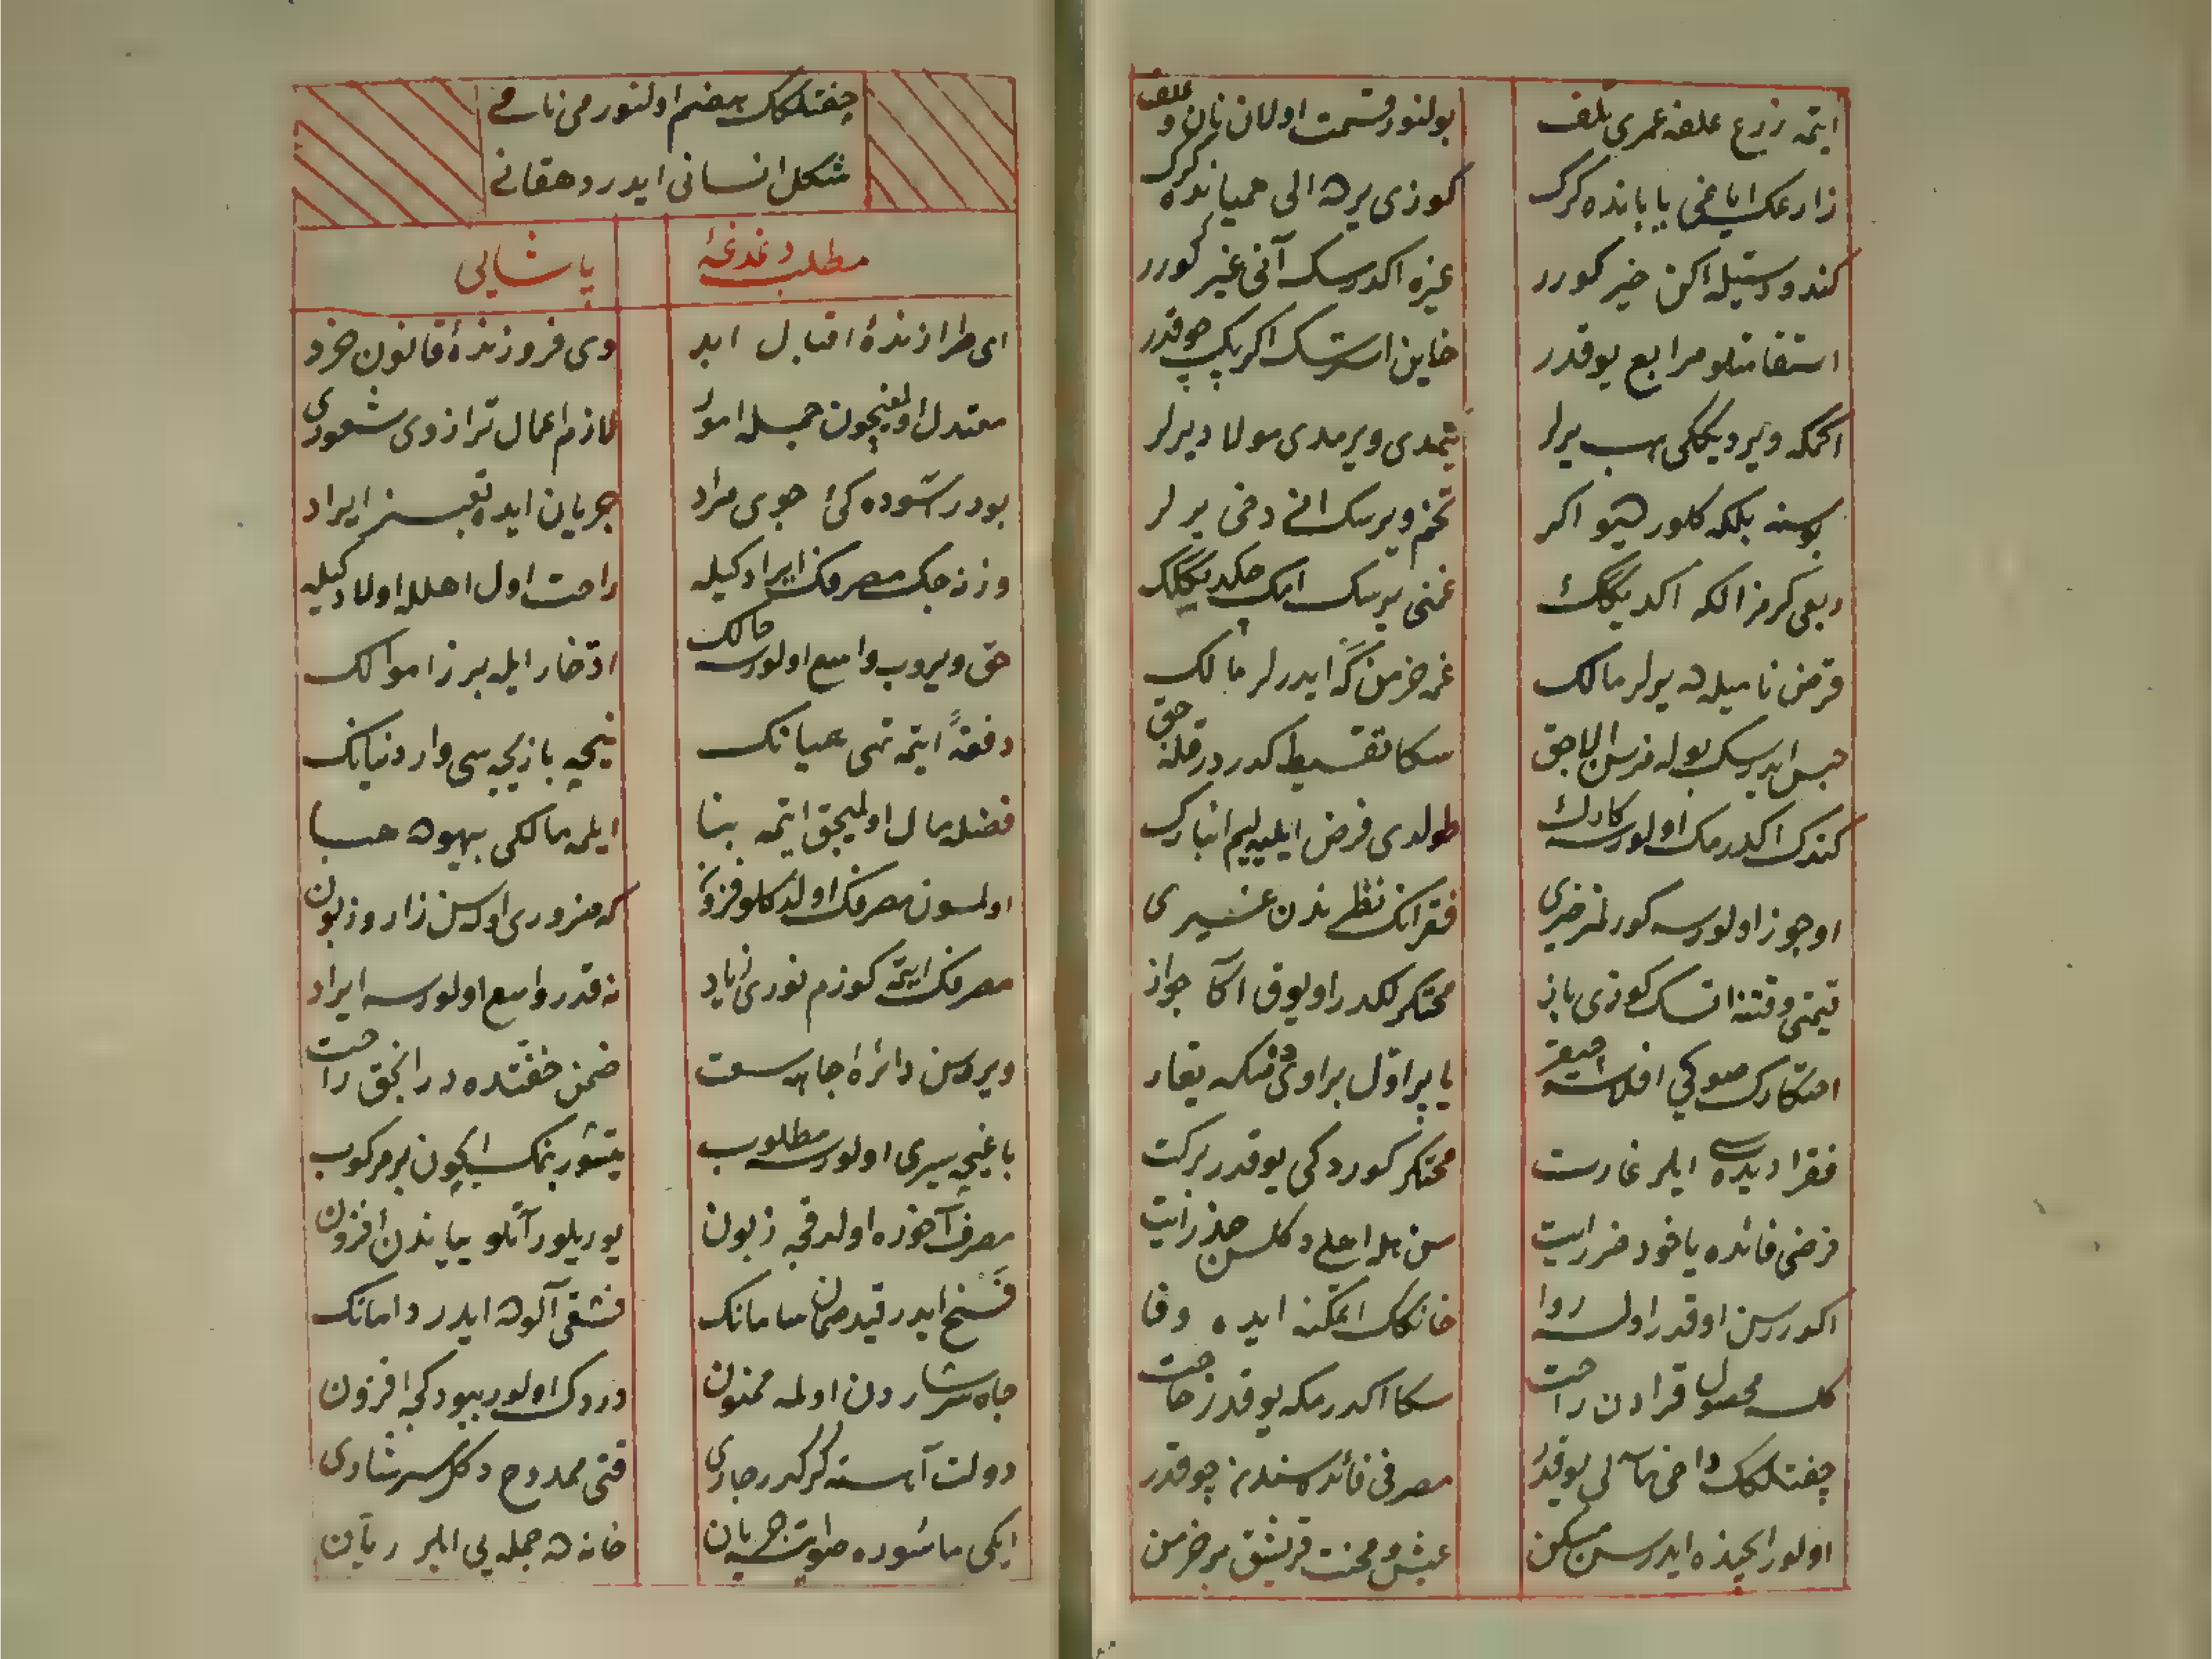 ایتمه زرع علفه عمری تلف بولنور قسمت اولان نان و علف
زارعک ایاغی یاباندە کرک کوزی یرده الی همیاندە کرک
کندو دستیله اکن خیر کورر غیره اکدرسک آنی غیر کورر
استقامتلو مرابع یوقدر خاین استرسک اکر پک چوقدر
اکمکه ویردیککی هب یرلر بتمدی ویرمدی مولا دیرلر
بوسنه بلکه کلور دیو اکر تخم ویرسک انی دخی یرلر
ربعی کرمز الکه اکدیککک غمنی یرسک امک چکدیککک
قرض نامیله ده یرلر مالک غم خرمن که ایدرلر مالک
حبس ایدرسک بوله مزسن الاجق سکا تقسیط کدر در قلەجق
کندک اکدرمک اولورسه کارک طولدی فرض ایلیه لیم انبارک
اوجوز اولورسه کورلمز خیری فقرانک نظری ندن غیری
قیمتی وقتنه انک کوزی باز محتکرلکدر او یوق اکا جواز
احتکارک صوکی افلاسه چیقر یاپر اول بر اوی صکره یقار
فقرا دیدەسی ایلر غارت محتکر کوردکی یوقدر برکت
فرضی فائده یاخود ضرر ایت سن بو اهلی دکلسن حذر ایت
اکوررسن او قدر اولسه روا خانکک اتمکنه ایده وفا
کلسه محصول قرادن راحت سکا اکدرمکه یوقدر حاجت
چفتلکک داخی مآلی یوقدر مصرفی فائده سندن چوقدر
اولور انجیده ایدرسن مسکن عیش و محنت قریشق بر خرمن
چفتلکک هضم اولنور می نانی
شکل انسانی ایدر دهقانی
مطلب دغدغهٔ پاشالی
ای طرازندهٔ اقبال ابد وی فروزندهٔ قانون خرد
معتدل اولمغیچون جمله امور لازم اعمال ترازوی شعور
بودر آسوده کئ جوی مراد جریان ایده تعبسز ایراد
وزنه چک مصرفک ایرادکیله راحت اول اهلله اولادکیله
حق ویروب واسع اولورسه حالک ادخار ایله بر از اموالک
دفعةً ایتمه تهی همیانک نیجه بازیچه سی وار دنیانک
فضله مال اولمیجق ایتمه بنا ایلمه مالکی بیهوده هبا
اولمسون مصرفک اولدکلو فزون که ضروری اوله سن زار و زبون
مصرفک ایتمه کوزم نوری زیاد نه قدر واسع اولورسه ایراد
ویرمسن دائرهٔ جاهه سعت ضمن خفتده در انجق راحت
باغچه سیری اولورسه مطلوب یتشور بنمک ایچون بر مرکوب
مصرف آخوره اولدقجه زبون یوریلور آتلو پیاندن افزون
فسخ ایدر قید حمان سامانک فشقی آلوده ایدر دامانک
جاه سرشاردن اولمه ممنون دردک اولور بیودکجه افزون
دولت آهسته کرکدر جاری قتی ممدوح دکل سرشاری
ایکی ماسوره صو ایتسه جریان خانه ده جمله یی ایلر ریان